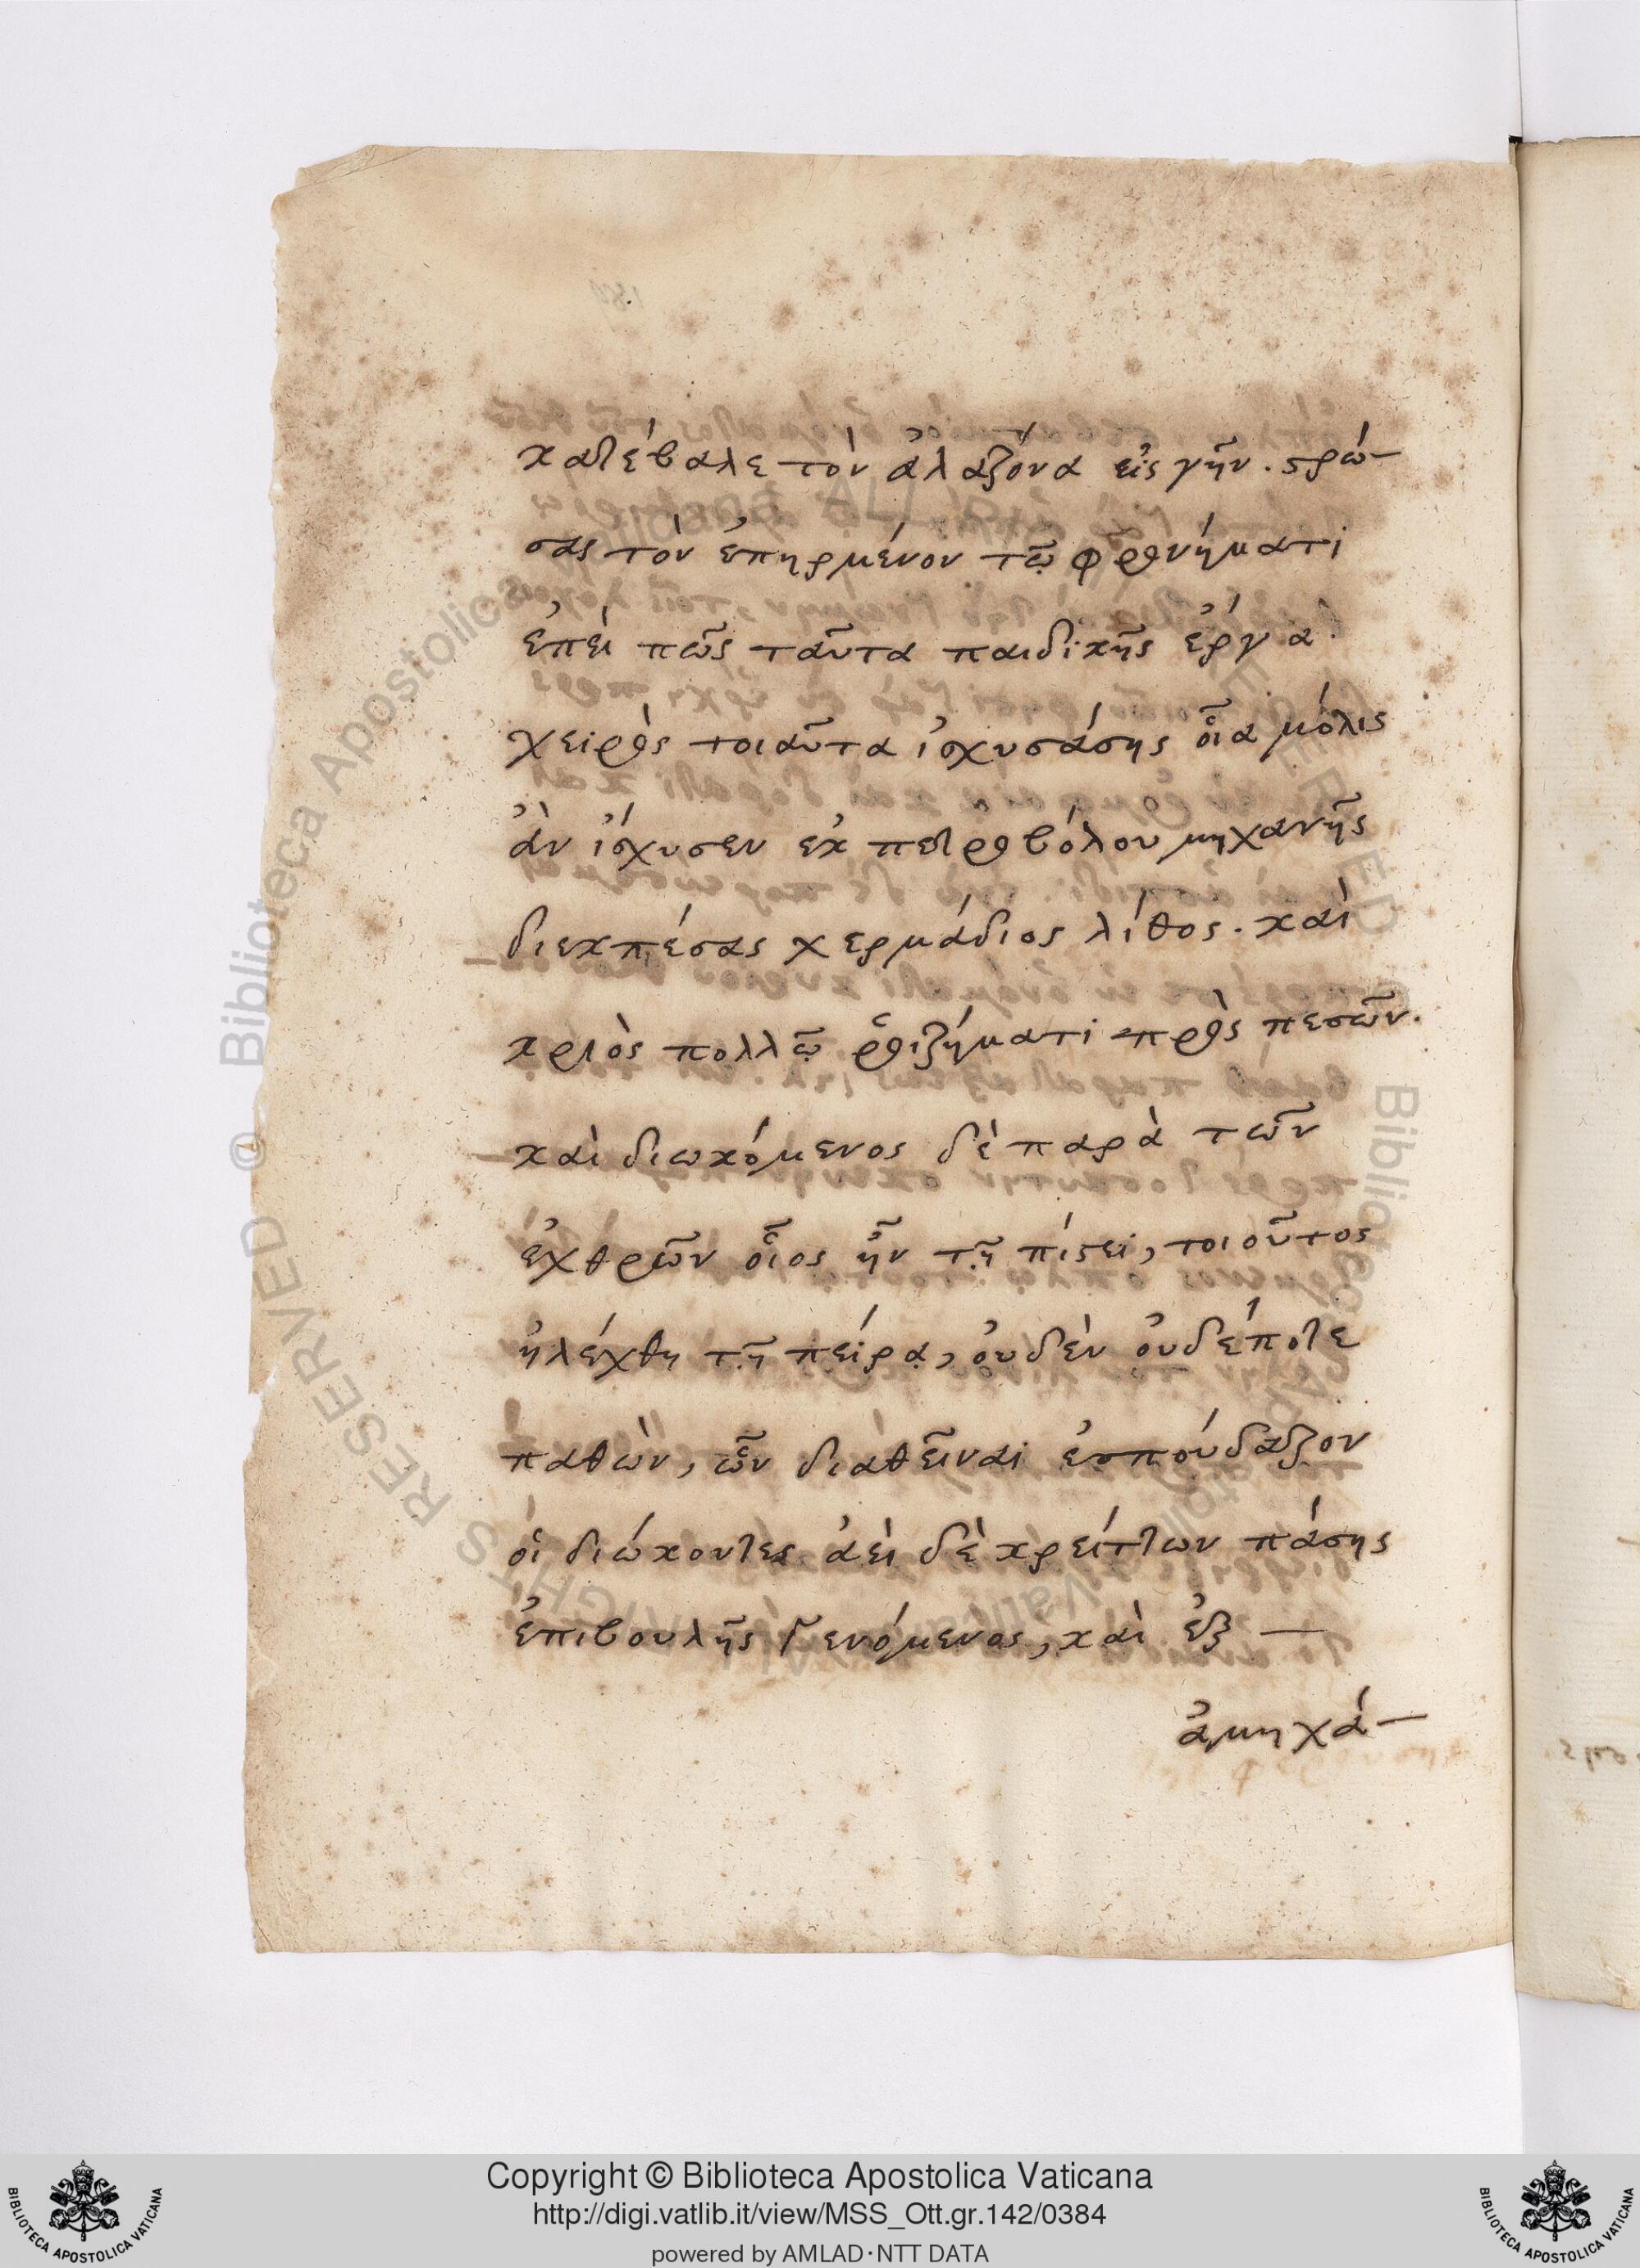 κατέβαλε τὸν ἀλαζόνα εἰς γῆν. στρώ-
σας τὸν ἐπηρμένον τῶ φρονήματι
ἐπεὶ πῶς ταῦτα παιδικῆς ἔργα
χειρὸς τοιαῦτα ἰσχυσάσης οἷα μόλις
ἂν ἴσχυσεν ἐκ πετροβόλου μηχανῆς
διεκπέσας χερμάδιος λίθος. καὶ
κριὸς πολλῶ ῥοιζήματι πρὸς πεσῶν.
καὶ διωκόμενος δὲ παρὰ τῶν
ἐχθρῶν οἷος ἦν τῆ πίστει, τοιοῦτος
ἠλέχθη τῆ πείρα, οὐδὲν οὐδέποτε
παθὼν, ὧν διαθεῖναι ἐσπούδαζον
οἱ διώκοντες ἀεὶ δὲ κρείττων πάσης
ἐπιβουλῆς γενόμενος, καὶ ἐξ —
ἀμηχά-
Copyright © Biblioteca Apostolica Vaticana
http://digi.vatlib.it/view/MSS_Ott.gr.142/0384
powered by AMLAD·NTT DATA
BIBLIOTECA APOSTOLICA VATICANA
BIBLIOTECA APOSTOLICA VATICANA